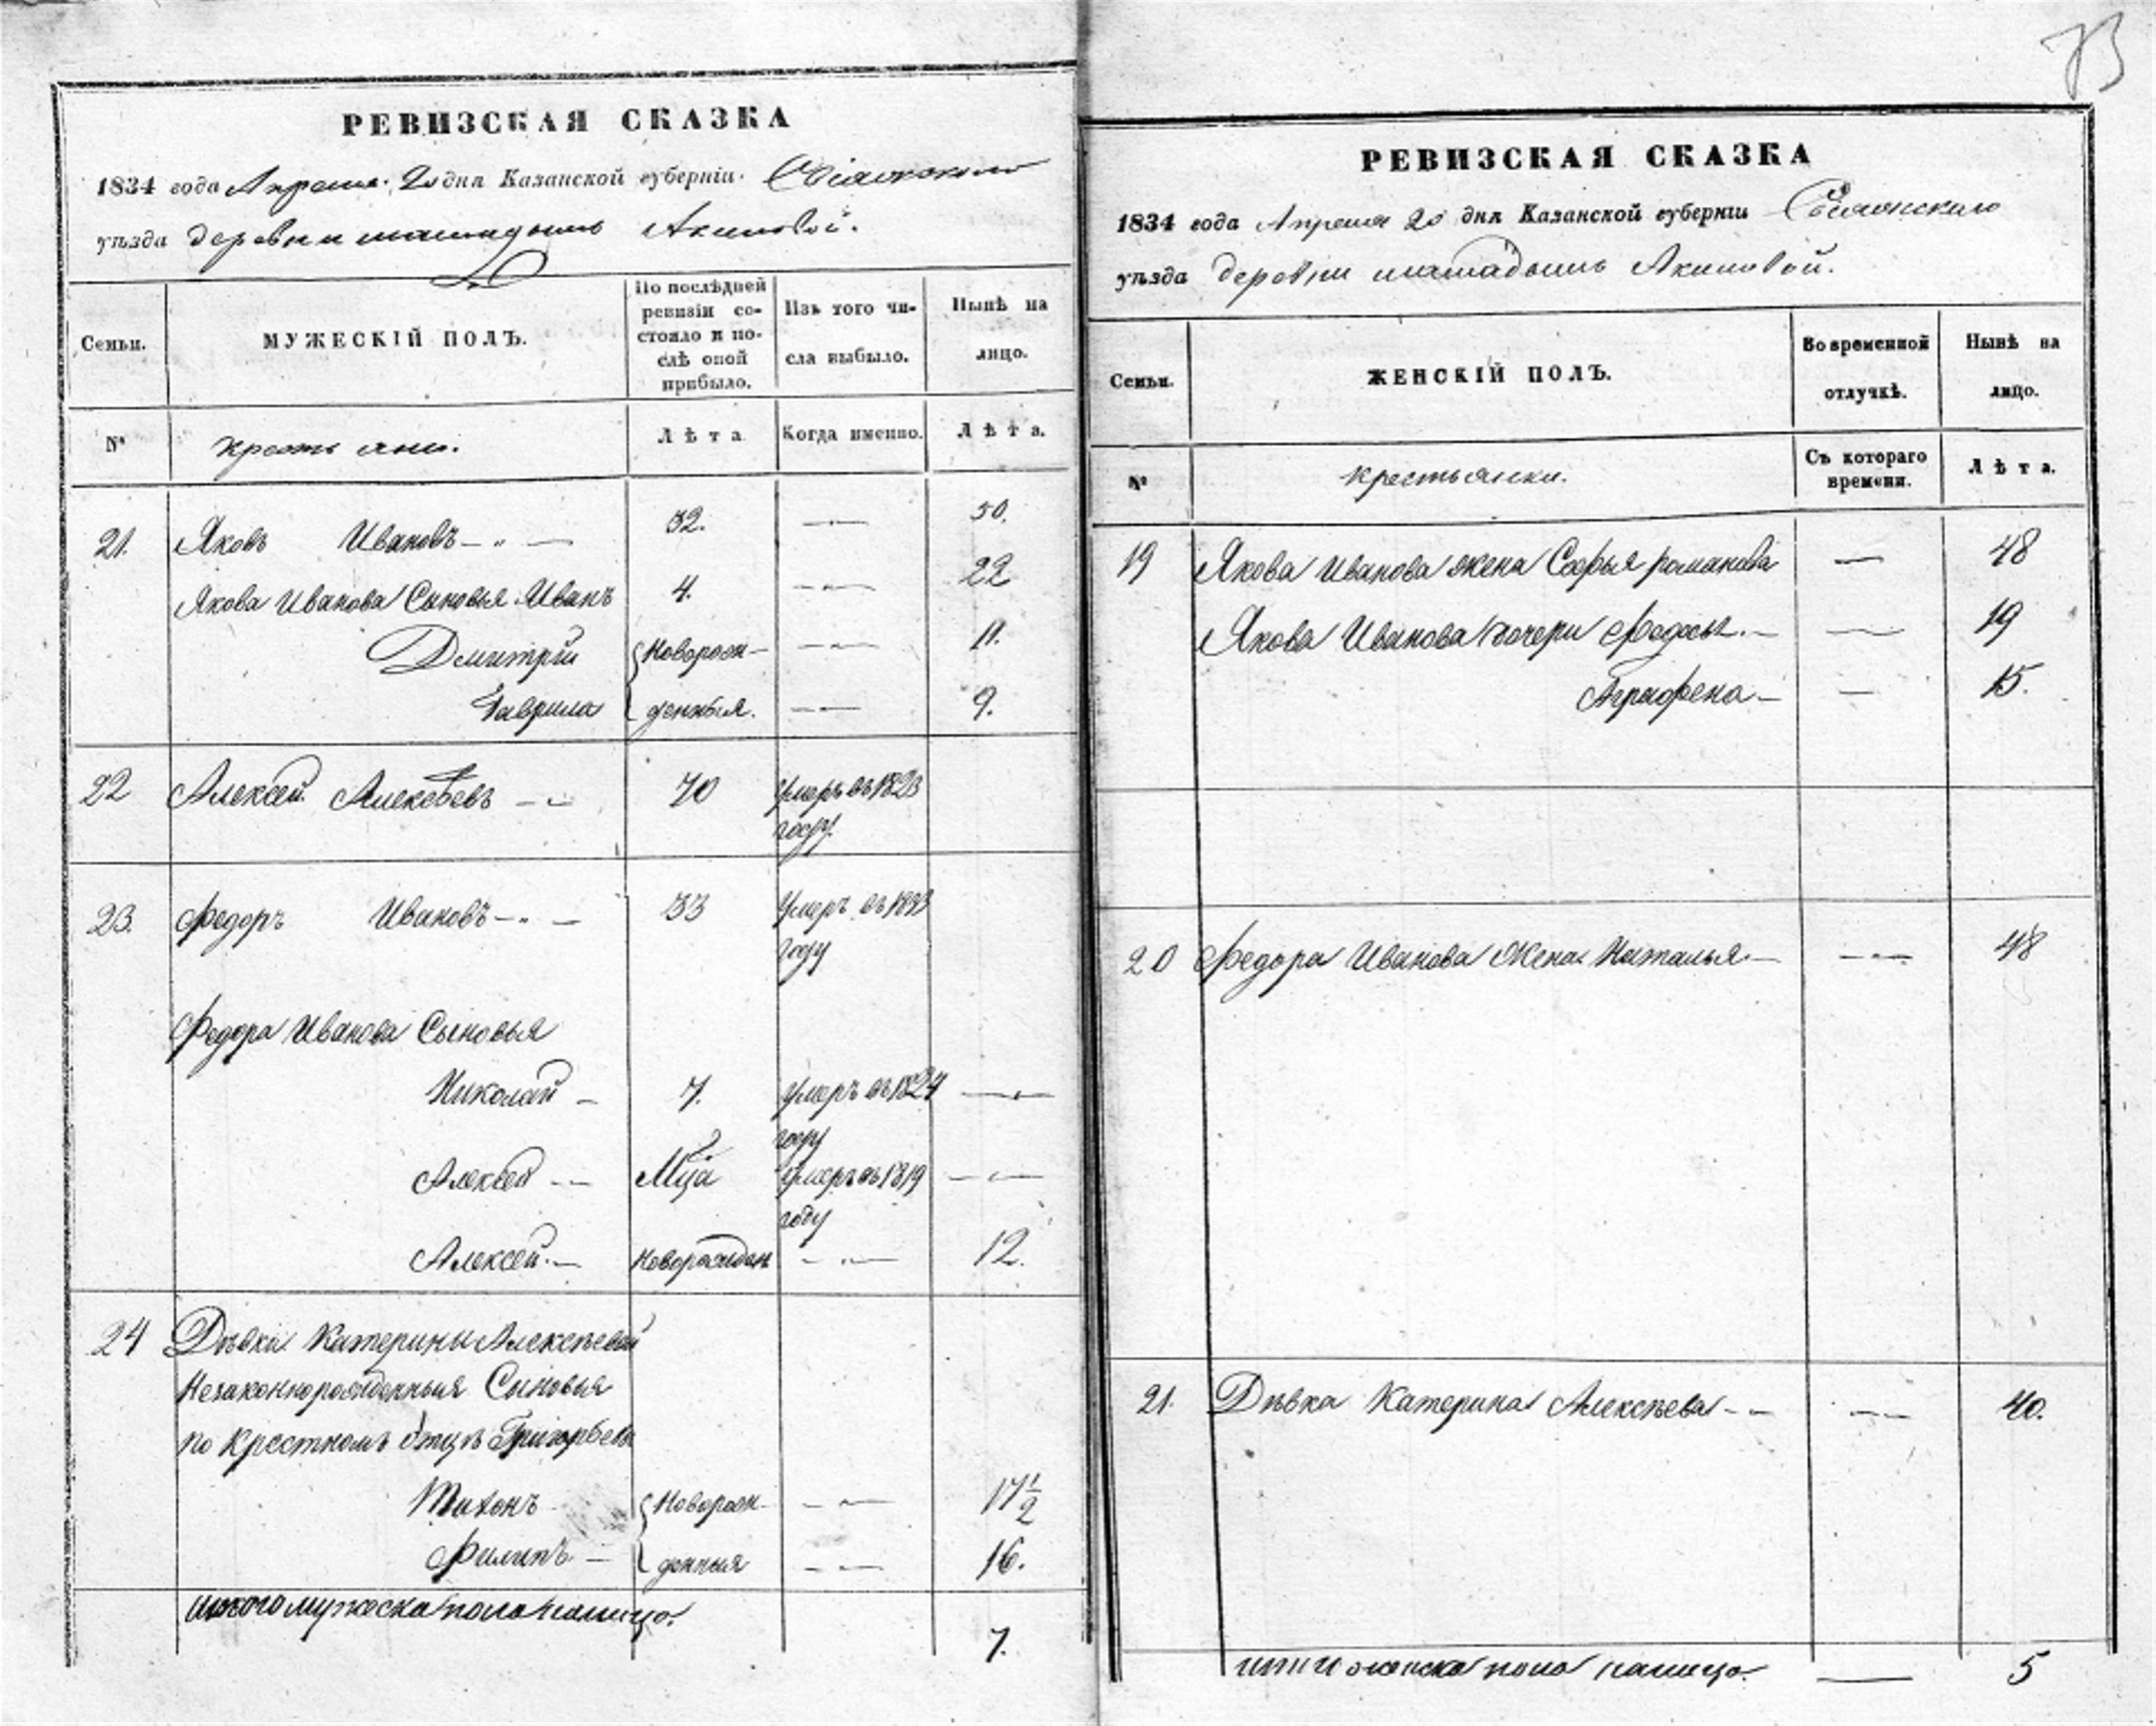 73
РЕВИЗСКАЯ СКАЗКА
1834 года Апреля 20 дня Казанской губерніи Свіяжскаго
уѣзда деревни Акиповой.
Семьи.
МУЖЕСКІЙ ПОЛЪ.
По послѣдней
ревизіи со-
стояло и по-
слѣ оной
прибыло.
Изъ того чи-
сла выбыло.
Нынѣ на
лицо.
№
крестьяни.
Лѣта
Когда именно.
Лѣта.
21. Яковъ Ивановъ 32. — 50.
Якова Иванова Сыновья Иванъ 4. — 22
Дмитрій Новорож- — 11.
Гаврила денныя. — 9.
22 Алексей Алексѣевъ 70 умеръ въ 1823
году.
23. Федоръ Ивановъ 33 умеръ въ 1833
году
Федора Иванова Сыновья
Николай 7. умеръ въ 1824 —
году
Алексей Мца умеръ въ 1819 —
году
Алексей Новорожден — 12.
24 Дѣвки Катерины Алексѣевой
Незаконнорожденныя Сыновья
по Крестномъ Отцѣ Григорьевы
Тихонъ Новорож- — 17 1/2
Филипъ денныя — 16.
итого мужеска пола налицо.
7.
РЕВИЗСКАЯ СКАЗКА
1834 года Апреля 20 дня Казанской губерніи Свіяжскаго
уѣзда деревни Акиповой.
Семьи.
ЖЕНСКІЙ ПОЛЪ.
Во временной
отлучкѣ.
Нынѣ на
лицо.
№
крестьянки.
Съ котораго
времени.
Лѣта.
19 Якова Иванова жена Софья романова — 48
Якова Иванова дочери Федосья — 19
Аграфена — 15.
20 Федора Иванова Жена Наталья — 48
21. Дѣвка Катерина Алексѣева — 40.
итого женска пола налицо. — 5